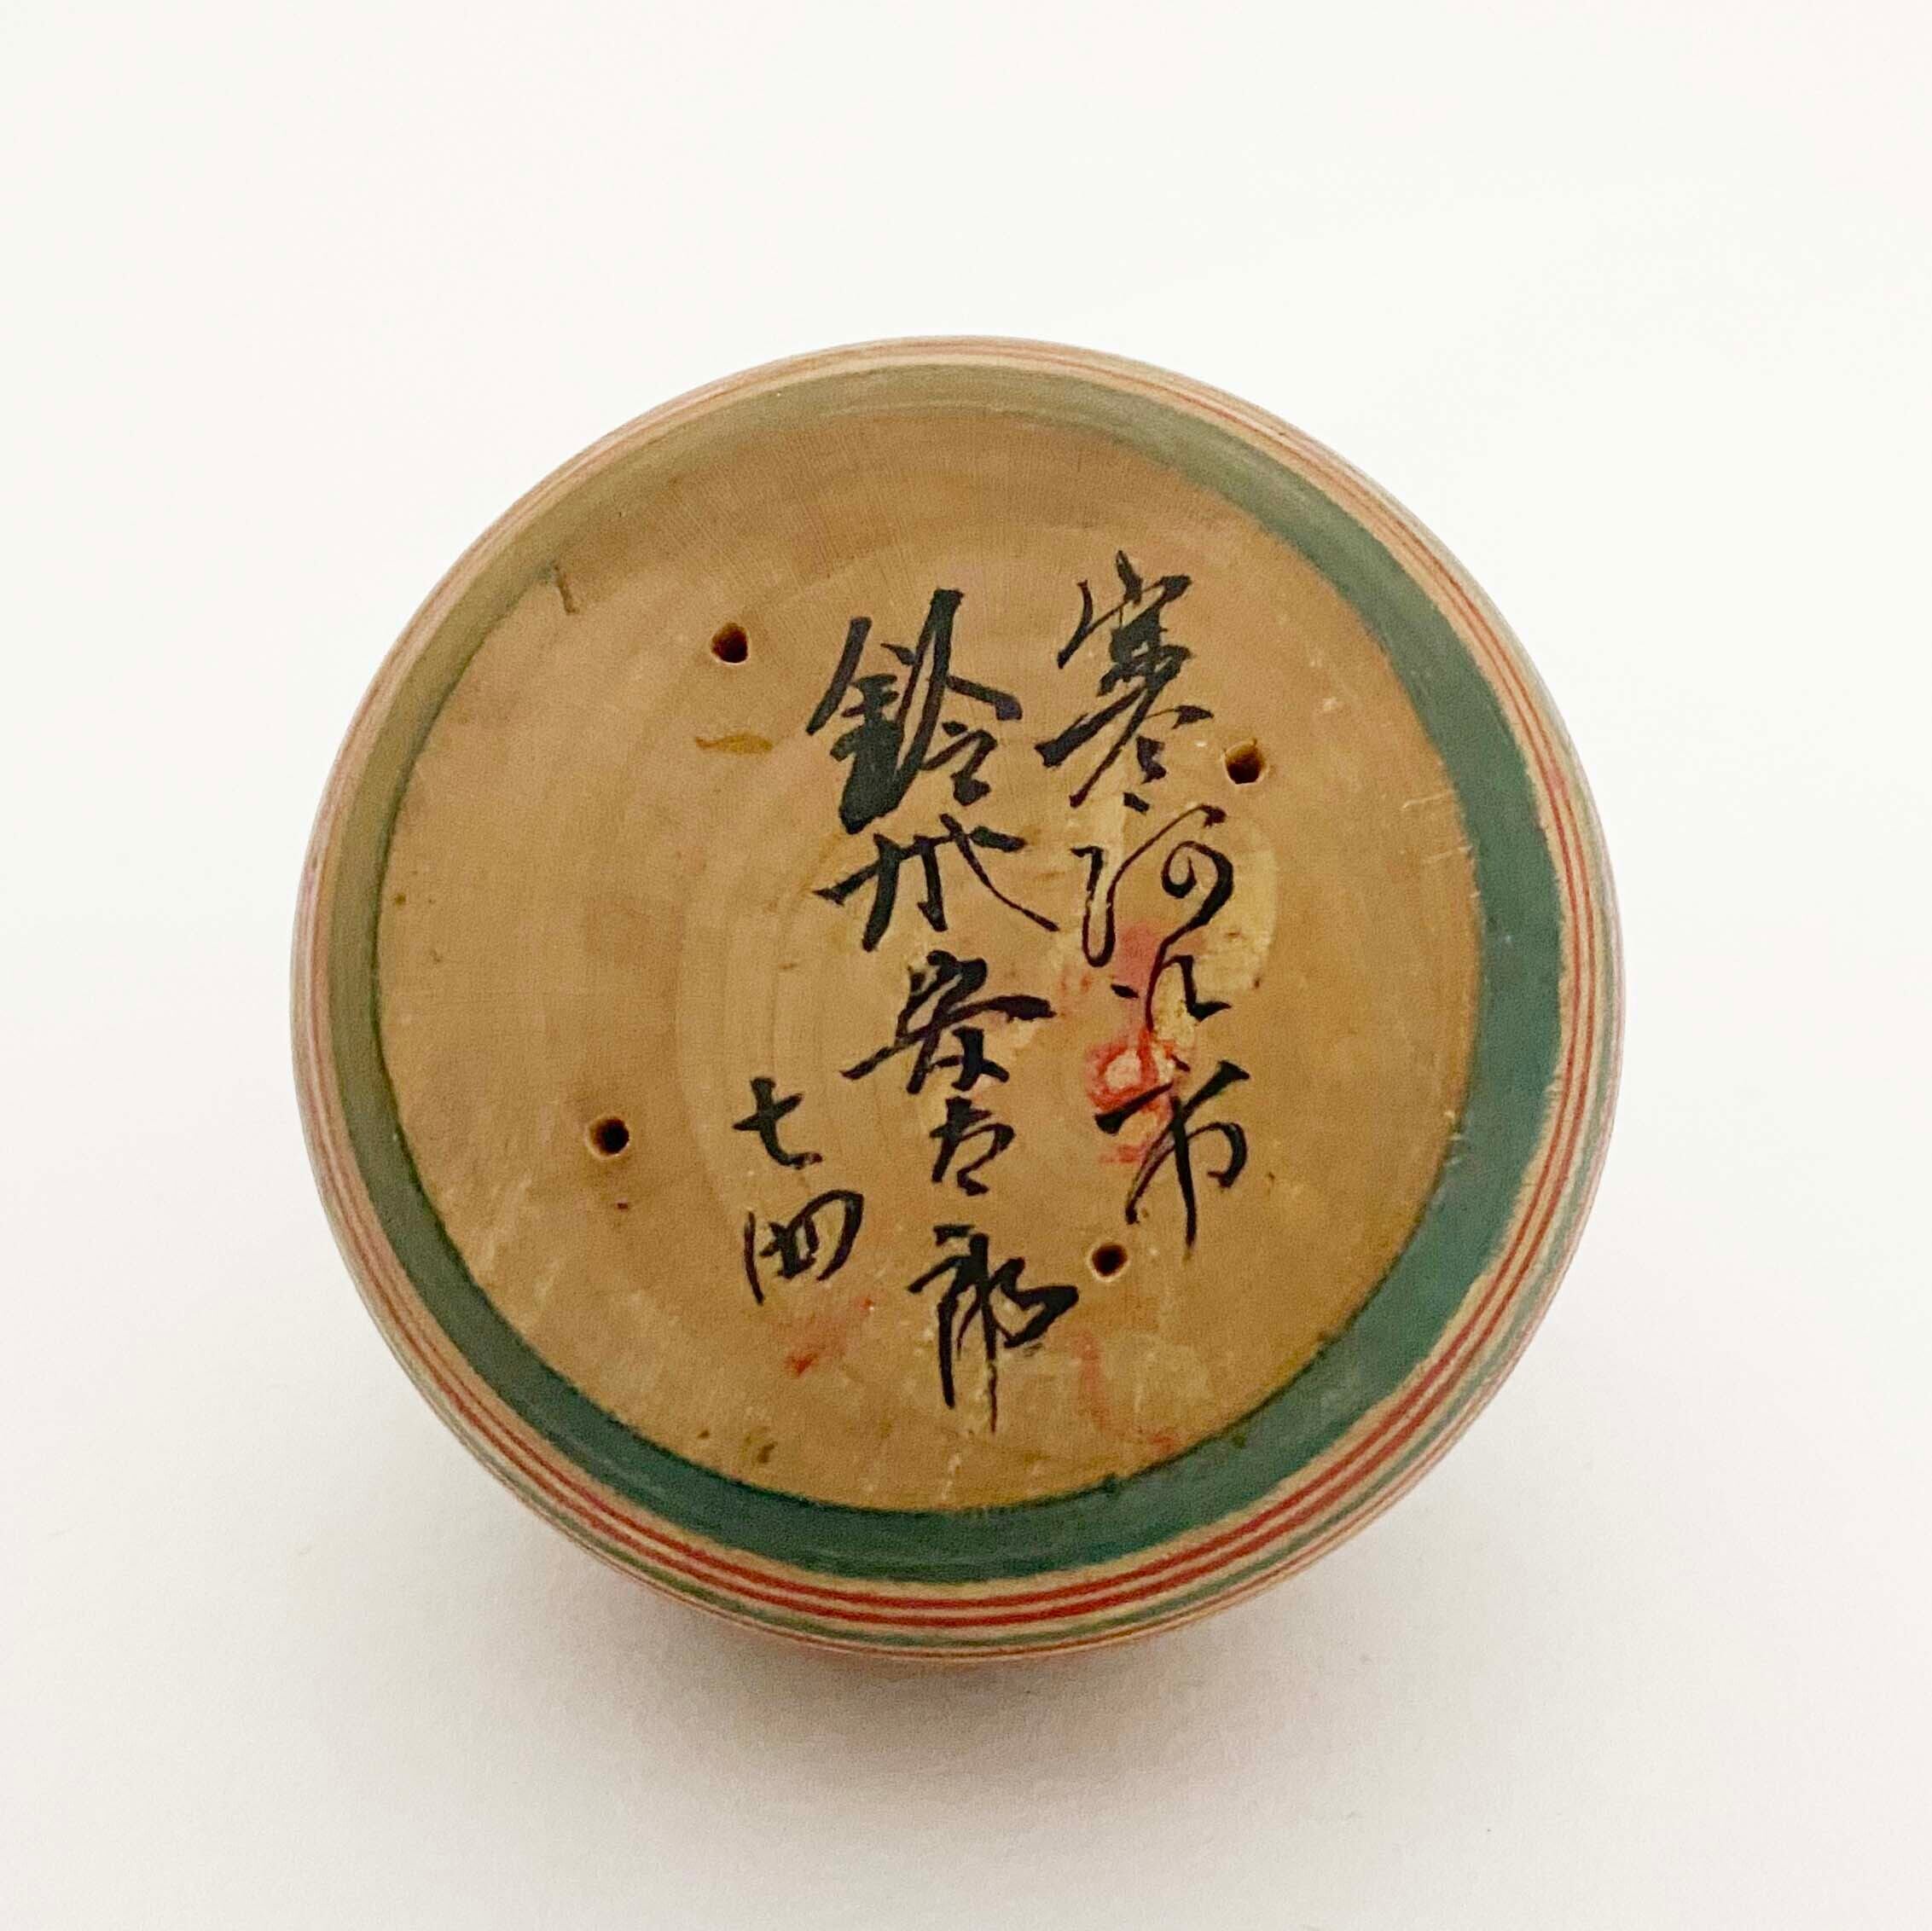 寒河江市
鈴木安太郎
七四